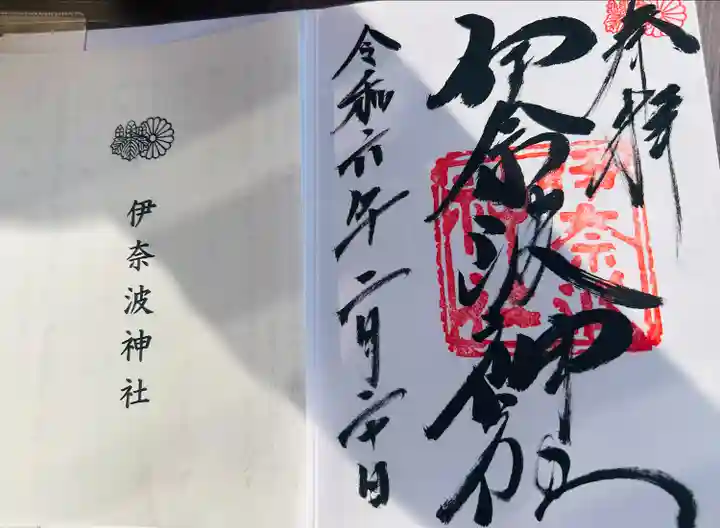 奉拝
伊奈波神社
伊奈波神社
令和六年二月二十日
伊奈波神社